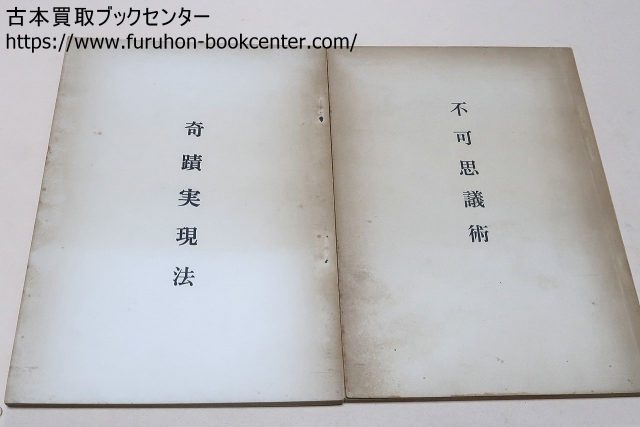 古本買取ブックセンター
https://www.furuhon-bookcenter.com/
奇蹟実現法
不可思議術